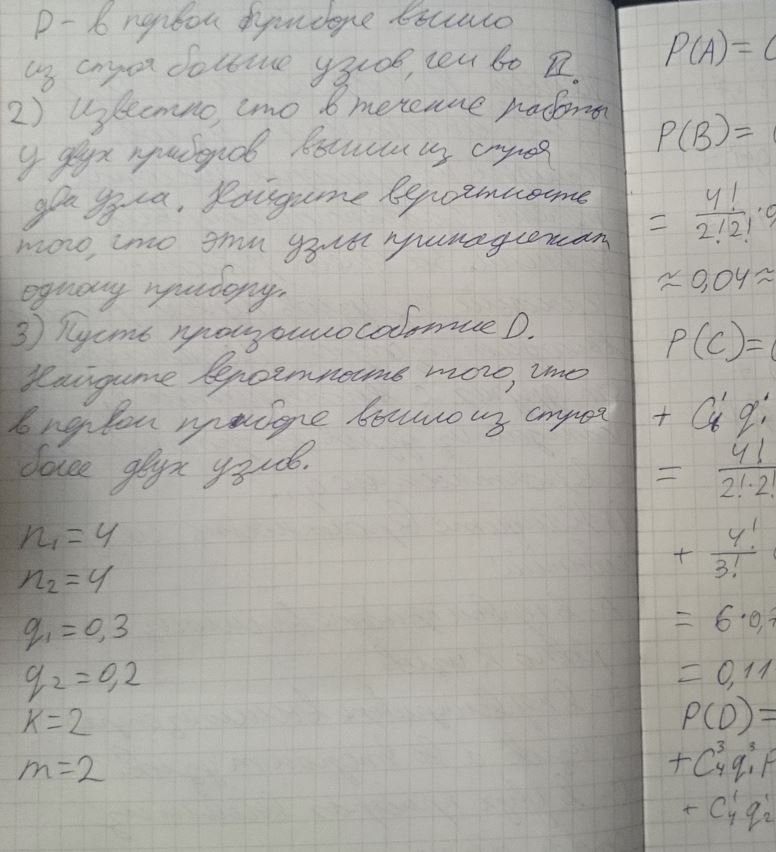 D - в первом приборе вышло
из строя больше узлов, чем во II.
2) Известно, что в течение работы
у двух приборов вышли из строя
два узла. Найдите вероятность
того, что эти узлы принадлежат
одному прибору.
3) Пусть произошло событие D.
Найдите вероятность того, что
в первом приборе вышло из строя
более двух узлов.
n₁=4
n₂=4
q₁=0,3
q₂=0,2
k=2
m=2
P(A)=(
P(B)=(
= 4!/2!2! ·
≈0,04≈
P(C)=(
+ C₄¹ q₁¹
= 4!/2!·2!
+ 4!/3!
= 6·0,
= 0,11
P(D)=
+C₄³q₁³p
+ C₄¹ q₂¹